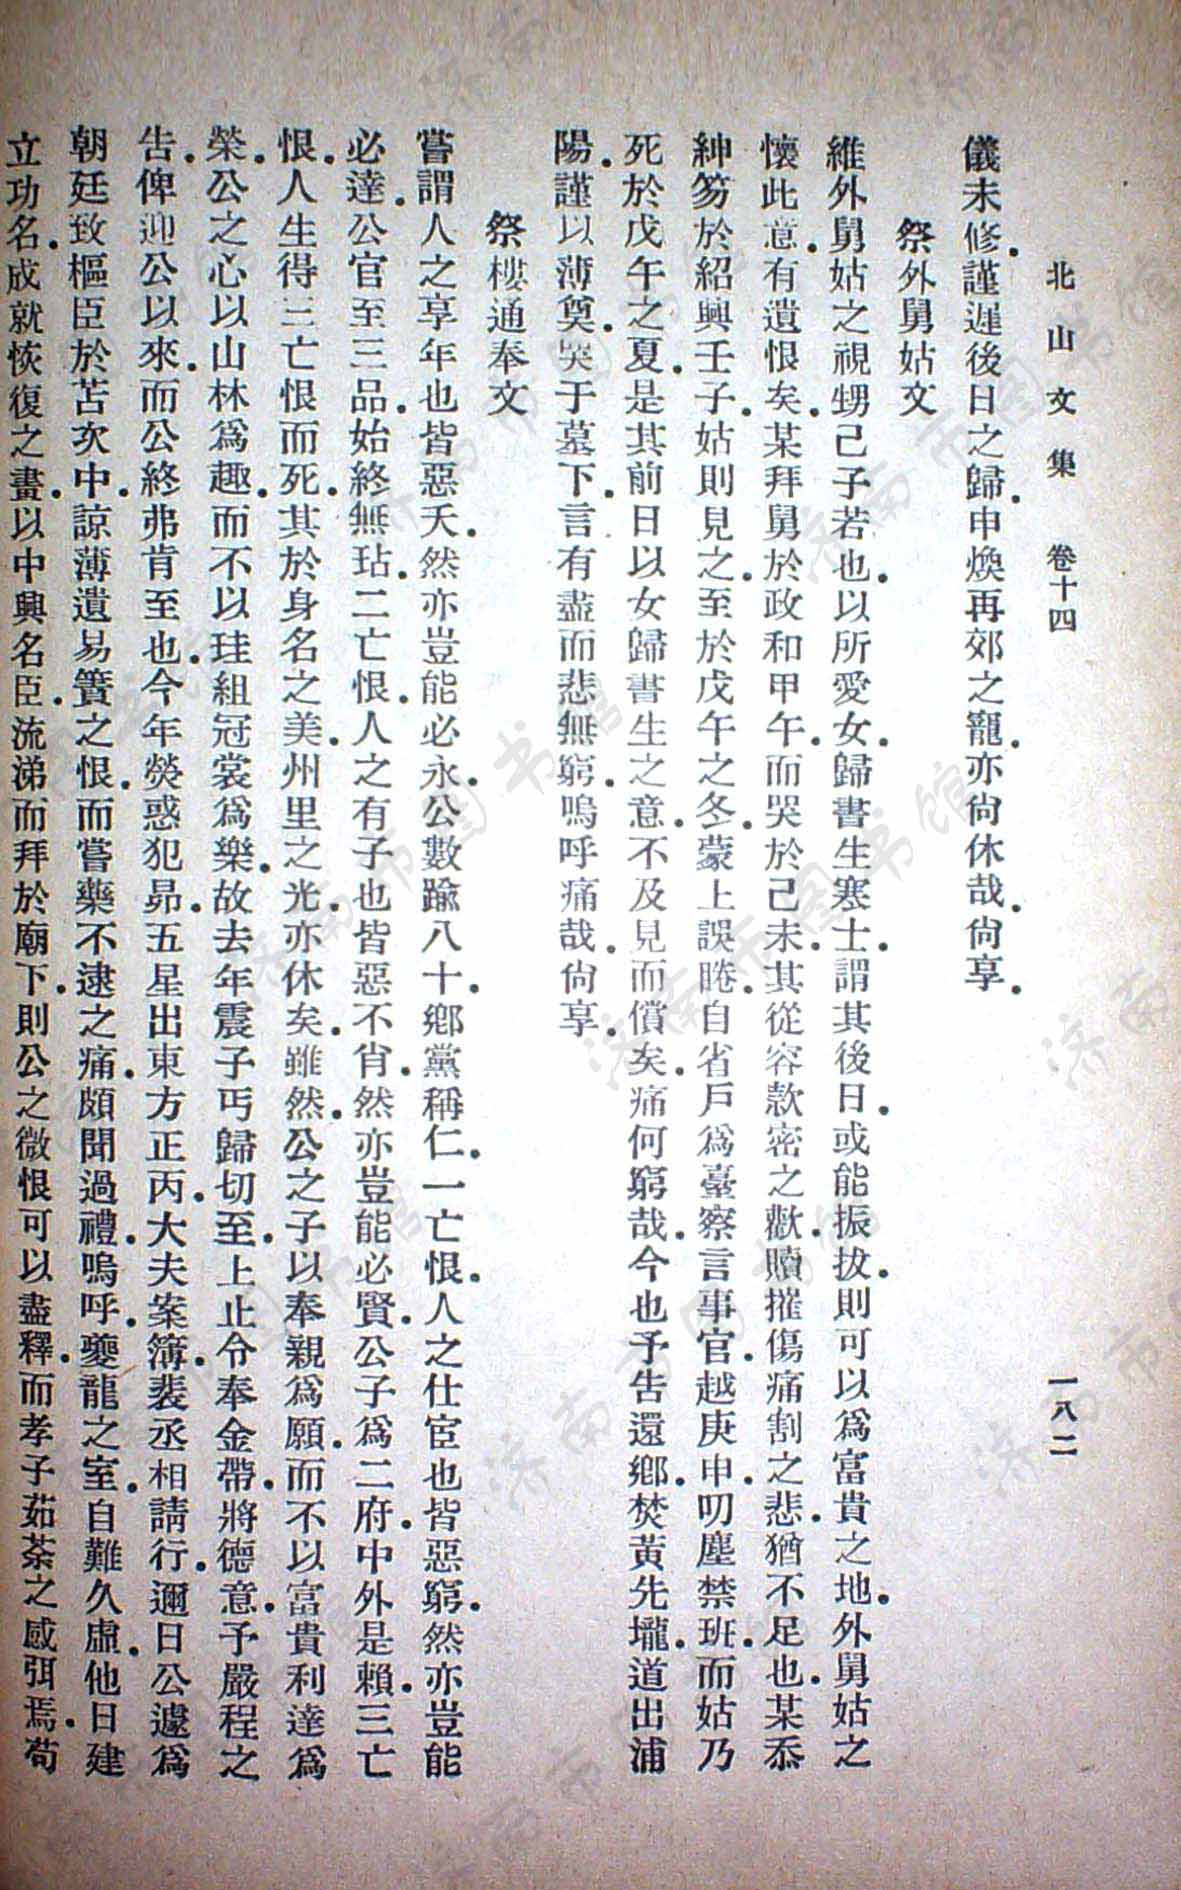 北山文集 卷十四 一八二
儀未修．謹遲後日之歸．申煥再郊之寵．亦尙休哉．尙享．
祭外舅姑文
維外舅姑之視甥己子若也．以所愛女．歸書生寒士．謂其後日．或能振拔．則可以爲富貴之地．外舅姑之
懷此意．有遺恨矣．某拜舅於政和甲午．而哭於己未．其從容款密之歡．贖摧傷痛割之悲．猶不足也．某忝
紳笏於紹興壬子．姑則見之．至於戊午之冬．蒙上誤睠．自省戶爲臺察言事官．越庚申．叨塵禁班．而姑乃
死於戊午之夏．是其前日以女歸書生之意．不及見而償矣．痛何窮哉．今也予告還鄕．焚黃先壠．道出浦
陽．謹以薄奠．哭于墓下．言有盡而悲無窮．嗚呼痛哉．尙享．
祭樓通奉文
嘗謂人之享年也皆惡夭．然亦豈能必永．公數踰八十．鄕黨稱仁．一亡恨．人之仕宦也皆惡窮．然亦豈能
必達．公官至三品．始終無玷．二亡恨．人之有子也皆惡不肖．然亦豈能必賢．公子爲二府．中外是賴．三亡
恨．人生得三亡恨而死．其於身名之美．州里之光．亦休矣．雖然．公之子以奉親爲願．而不以富貴利達爲
榮．公之心以山林爲趣．而不以珪組冠裳爲樂．故去年震子丐歸切至．上止令奉金帶．將德意．予嚴程之
告．俾迎公以來．而公終弗肯至也．今年熒惑犯昴．五星出東方正丙．大夫案簿．裴丞相請行．邇日公遽爲
朝廷致樞臣於苫次中．諒薄遺易簀之恨．而嘗藥不逮之痛．頗聞過禮．嗚呼．夔龍之室．自難久虛．他日建
立功名．成就恢復之畫．以中興名臣．流涕而拜於廟下．則公之微恨可以盡釋．而孝子茹荼之感弭焉．苟